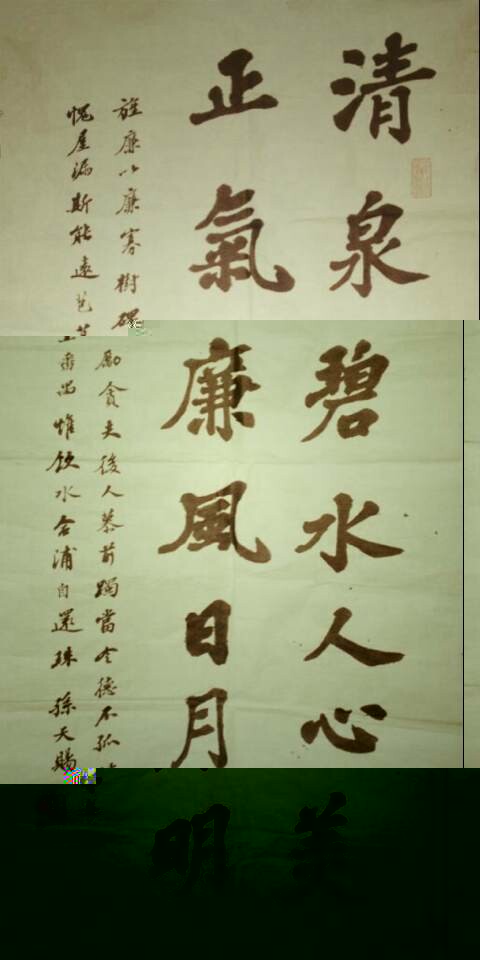 清泉碧水人心美
正氣廉風日月明
旌廉以廉寡樹碑勵貪夫後人慕前躅當令德不孤
愧屋漏斯能遠苞番禺惟飲水合浦自還珠 孫天賜